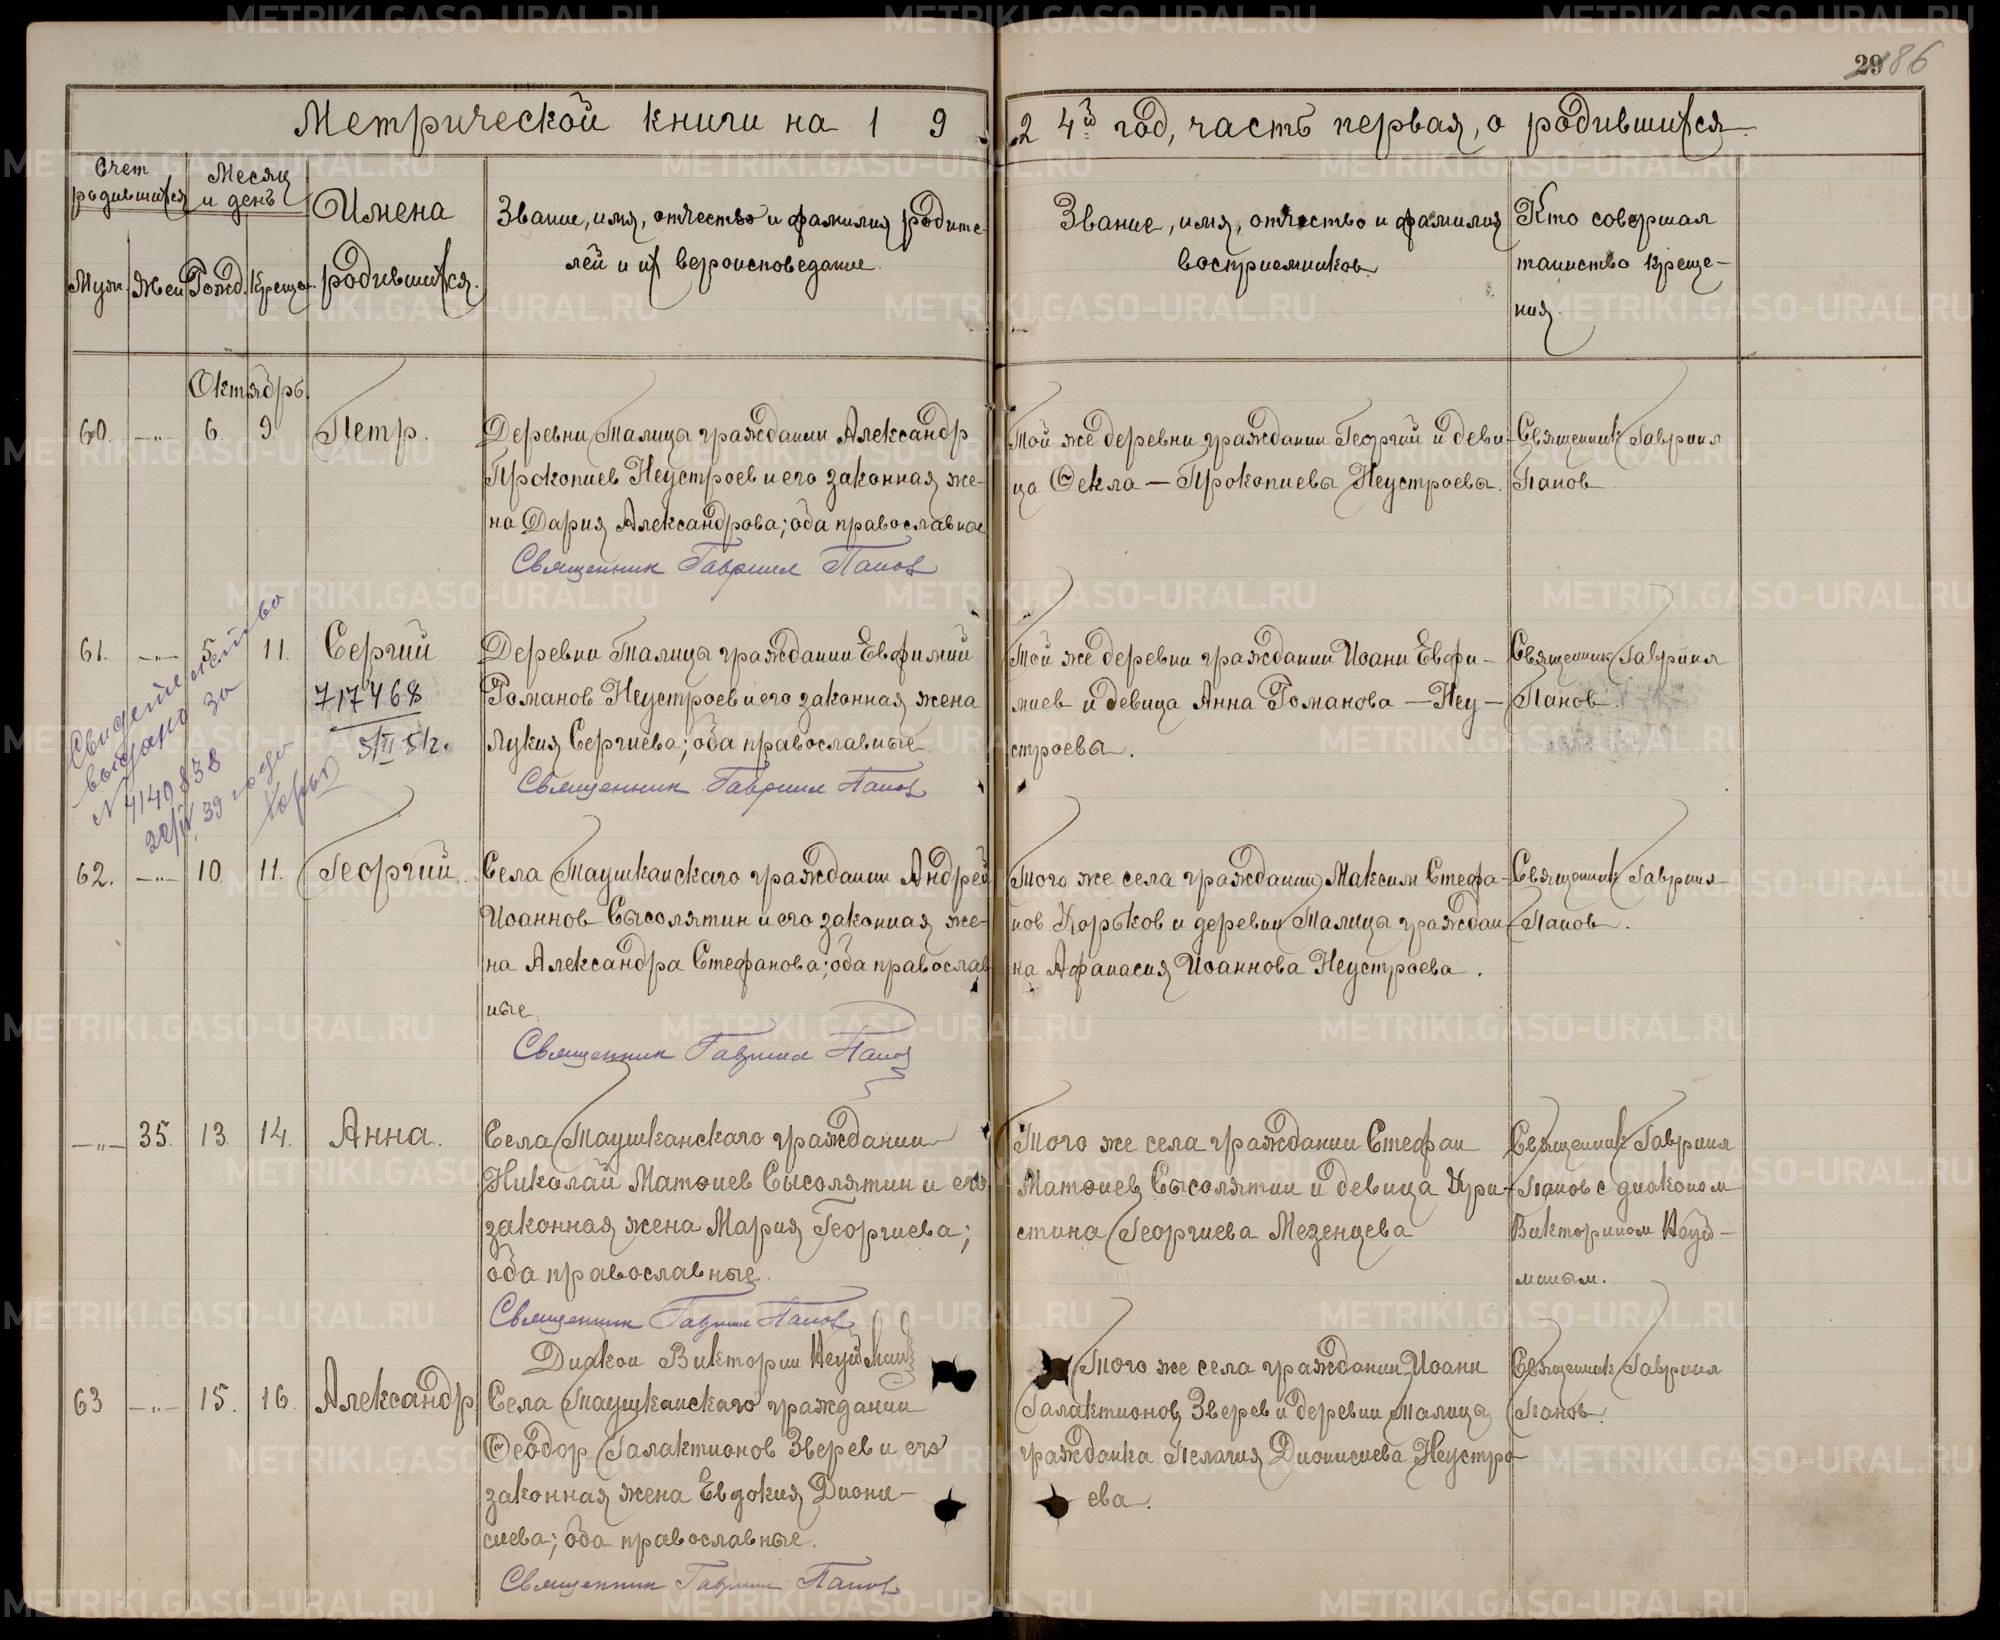 29 86
Метрической книги на 1924й год, часть первая, о родившихся
Счет родившихся
Месяц и день
Имена родившихся.
Звание, имя, отчество и фамилия родите-
лей и их вероисповедание.
Звание, имя, отчество и фамилия
восприемников.
Кто совершал
таинство креще-
ния.
Муж. Жен. Рожд. Креще.
Октябрь.
60. —"— 6. 9. Петр.
Деревни Талицы гражданин Александр
Прокопиев Неустроев и его законная же-
на Дария Александрова; оба православные
Священник Гавриил Попов
Той же деревни гражданин Георгий и деви-
ца Фекла — Прокопиевы Неустроевы.
Священник Гавриил
Попов
61. —"— 5. 11. Сергий
717468
5/II 51г.
Свидетельство
выдано за
N 4140838
20/IV 39 года
Деревни Талицы гражданин Евфимий
Романов Неустроев и его законная жена
Лукия Сергиева; оба православные
Священник Гавриил Попов
Той же деревни гражданин Иоанн Евфи-
миев и девица Анна Романова — Неу-
строевы.
Священник Гавриил
Попов
62. —"— 10. 11. Георгий.
Села Таушканскаго гражданин Андрей
Иоаннов Сысолятин и его законная же-
на Александра Стефанова; оба православ
ные.
Священник Гавриил Попов
Того же села гражданин Максим Стефа-
нов Хорьков и деревни Талицы граждан-
ка Афанасия Иоаннова Неустроева.
Священник Гавриил
Попов.
—"— 35. 13. 14. Анна.
Села Таушканскаго гражданин
Николай Матфиев Сысолятин и его
законная жена Мария Георгиева;
оба православные.
Священник Гавриил Попов
Диакон Викторин
Того же села гражданин Стефан
Матфиев Сысолятин и девица Хри-
стина Георгиева Мезенцева
Священник Гавриил
Попов с диаконом
Викторином
63 —"— 15. 16. Александр
Села Таушканскаго гражданин
Феодор Галактионов Зверев и его
законная жена Евдокия Диони-
сиева; оба православные.
Священник Гавриил Попов
Того же села гражданин Иоанн
Галактионов Зверев и деревни Талицы
гражданка Пелагия Дионисиева Неустро-
ева.
Священник Гавриил
Попов.
METRIKI.GASO-URAL.RU